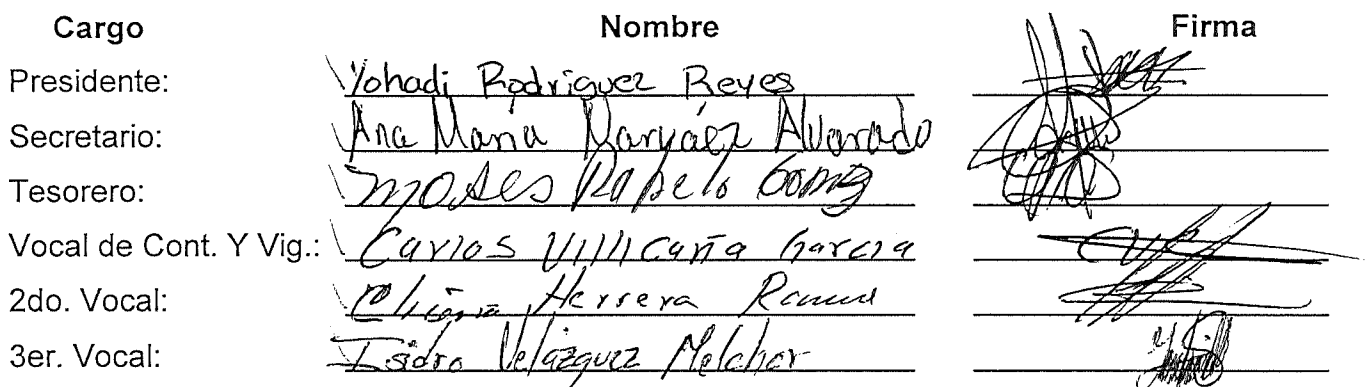 Cargo Nombre Firma
Presidente: Yohadi Rodriguez Reyes
Secretario: Ana Maria Narváez Alvarado
Tesorero: Moses Rabelo Gomez
Vocal de Cont. Y Vig.: Carlos Villicaña Garcia
2do. Vocal: Herrera
3er. Vocal: Isidro Velazquez Melchor